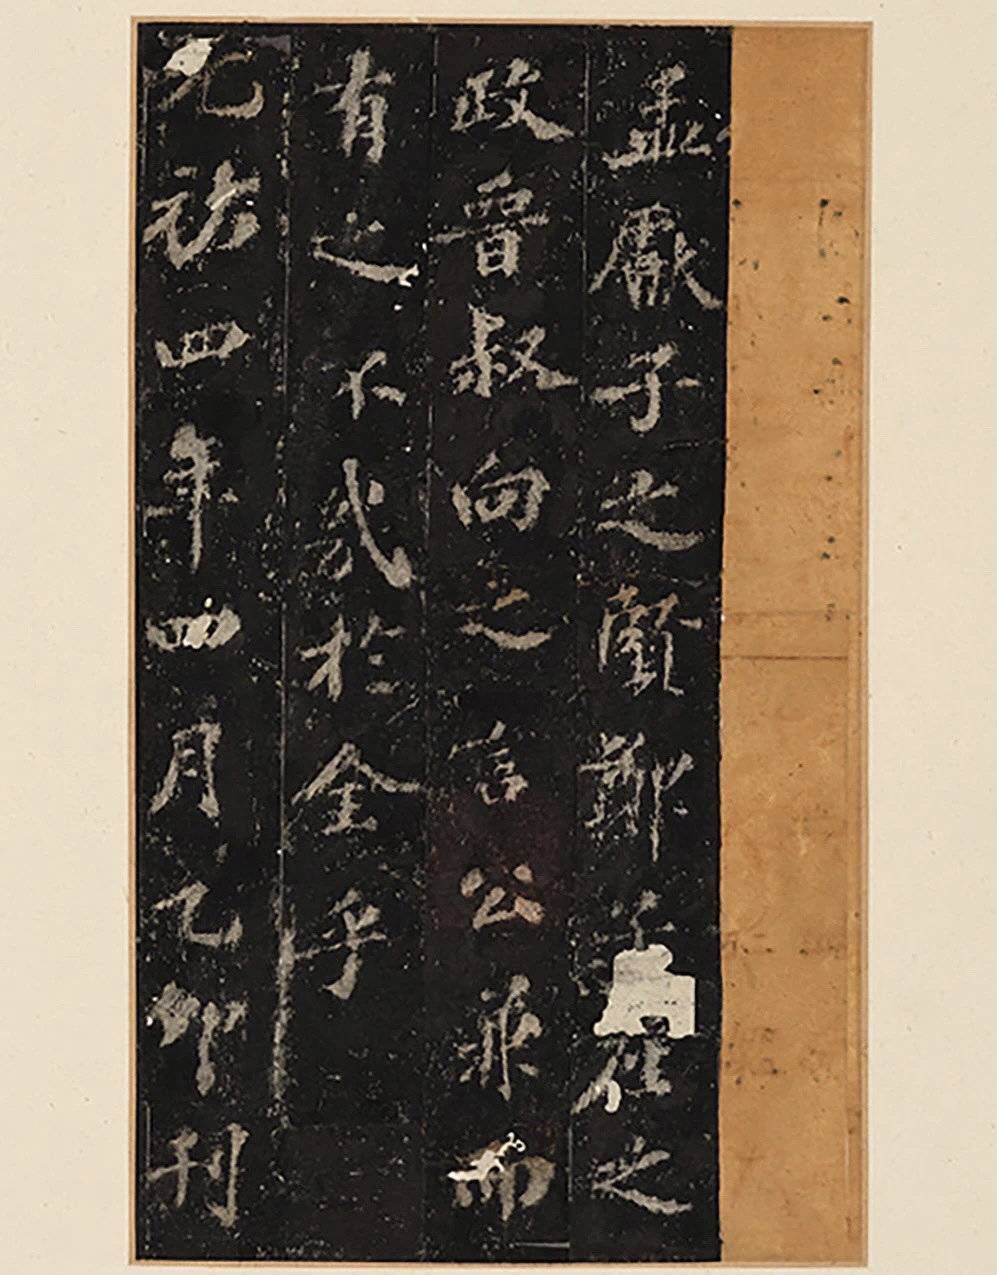 孟獻子之賢鄭子產之
政晉叔向之言公兼而
有之不幾於全乎
元祐四年四月乙卯刊